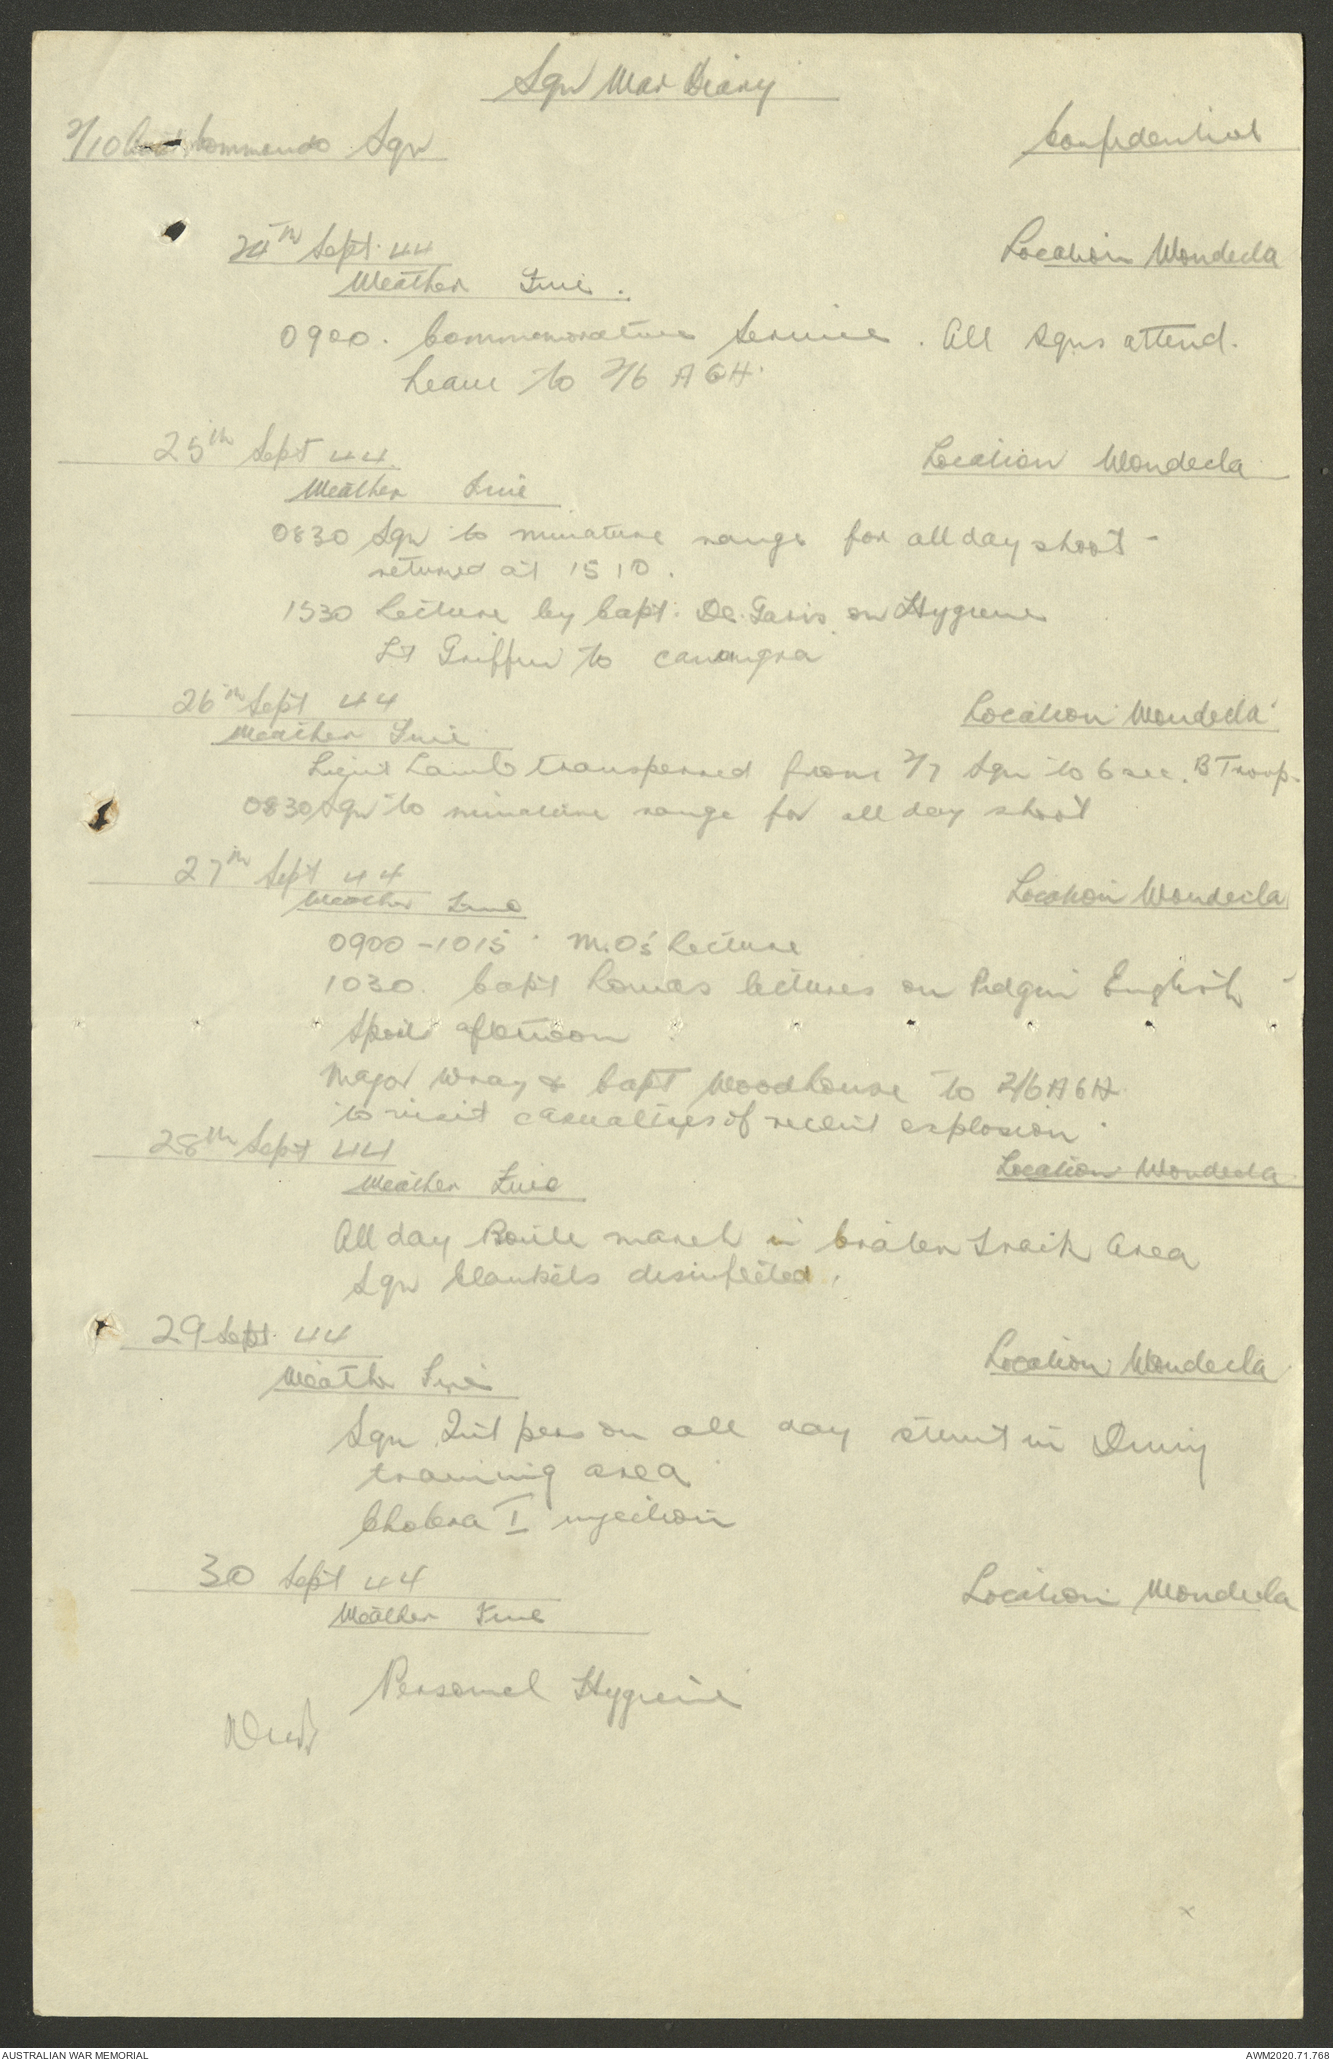 Sqn War Diary
2/10 Commando Sqn
Confidential
24th Sept. 44
Location Wondecla
Weather Fine.
0900. Commemorative Service. All Sqns attend.
Leave to 2/6 AGH.
25th Sept 44.
Location Wondecla
Weather Fine
0830 Sqn to miniature range for all day shoot -
returned at 1510.
1530 Lecture by Capt. De. Garis on Hygiene
Lt Griffin to canungra
26th Sept 44
Location Wondecla
Weather Fine
Lieut Lamb transferred from 2/7 Sqn to 6 sec. B Troop.
0830 Sqn to miniature range for all day shoot
27th Sept 44
Location Wondecla
Weather Fine
0900 - 1015. M.O's Lecture
1030. Capt Lomas lectures on Pidgin English -
Sports afternoon.
Major Wray & Capt Woodhouse to 2/6 AGH
to visit casualties of recent explosion.
28th Sept 44
Location Wondecla
Weather Fine
All day Route march in Crater Track Area
Sqn blankets disinfected.
29 Sept. 44
Location Wondecla
Weather Fine
Sqn Int pers on all day stunt in
training area
Cholera I injection
30 Sept 44
Location Wondecla
Weather Fine
Personel Hygiene